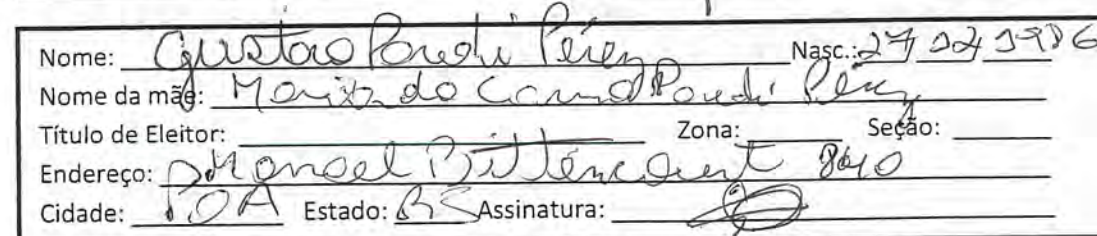 Nome: Gustavo Pérez Nasc.: 27
Nome da mãe: Maria do Carmo Pérez
Título de Eleitor: Zona: Seção:
Endereço: Manoel Bittencourt 840
Cidade: POA Estado: RS Assinatura: